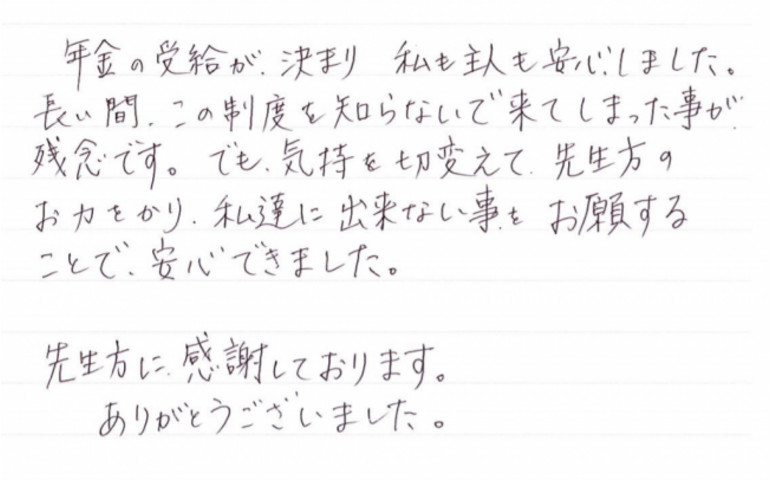 年金の受給が、決まり 私も主人も安心しました。
長い間、この制度を知らないで来てしまった事が
残念です。でも、気持を切変えて、先生方の
お力をかり、私達に出来ない事をお願いする
ことで、安心できました。
先生方に、感謝しております。
ありがとうございました。